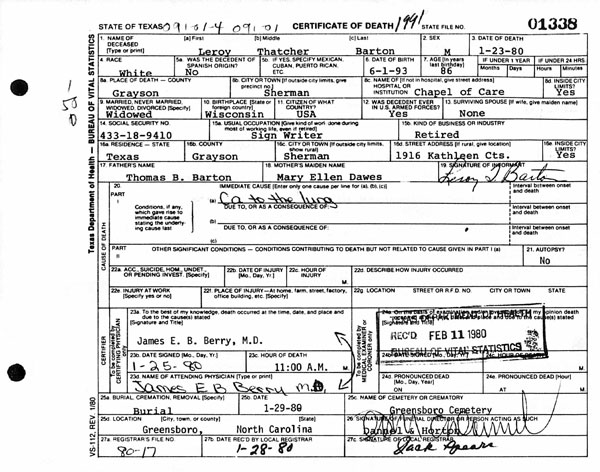 STATE OF TEXAS 09 01-4 09,01 CERTIFICATE OF DEATH 1991 STATE FILE NO. 01338
1. NAME OF DECEASED (Type or print) (a) First (b) Middle (c) Last 2. SEX 3. DATE OF DEATH
Leroy Thatcher Barton M 1-23-80
4. RACE 5a. WAS THE DECEDENT OF SPANISH ORIGIN? 5b. IF YES, SPECIFY MEXICAN, CUBAN, PUERTO RICAN, ETC 6. DATE OF BIRTH 7. AGE (In years last birthday) IF UNDER 1 YEAR Months Days IF UNDER 24 HRS. Hours Minutes
White No 6-1-93 86
8a. PLACE OF DEATH — COUNTY 8b. CITY OR TOWN (If outside city limits, give precinct no.) 8c. NAME OF (If not in hospital, give street address) HOSPITAL OR INSTITUTION 8d. INSIDE CITY LIMITS?
Grayson Sherman Chapel of Care Yes
9. MARRIED, NEVER MARRIED, WIDOWED, DIVORCED (Specify) 10. BIRTHPLACE (State or foreign country) 11. CITIZEN OF WHAT COUNTRY? 12. WAS DECEDENT EVER IN U.S. ARMED FORCES? 13. SURVIVING SPOUSE (If wife, give maiden name)
Widowed Wisconsin USA Yes None
14. SOCIAL SECURITY NO. 15a. USUAL OCCUPATION (Give kind of work done during most of working life, even if retired) 15b. KIND OF BUSINESS OR INDUSTRY
433-18-9410 Sign Writer Retired
16a. RESIDENCE — STATE 16b. COUNTY 16c. CITY OR TOWN (If outside city limits, show rural) 16d. STREET ADDRESS (If rural, give location) 16e. INSIDE CITY LIMITS?
Texas Grayson Sherman 1916 Kathleen Cts. Yes
17. FATHER'S NAME 18. MOTHER'S MAIDEN NAME 19. SIGNATURE OF INFORMANT
Thomas B. Barton Mary Ellen Dawes Leroy T. Barton
20. PART I IMMEDIATE CAUSE (Enter only one cause per line for (a), (b), (c)) Interval between onset and death
(a) Ca to the lung
Conditions, if any, which gave rise to immediate cause stating the underlying cause last
DUE TO, OR AS A CONSEQUENCE OF: Interval between onset and death
(b)
DUE TO, OR AS A CONSEQUENCE OF: Interval between onset and death
(c)
PART II OTHER SIGNIFICANT CONDITIONS — CONDITIONS CONTRIBUTING TO DEATH BUT NOT RELATED TO CAUSE GIVEN IN PART I (a) 21. AUTOPSY?
No
22a. ACC, SUICIDE, HOM, UNDET, OR PENDING INVEST. (Specify) 22b. DATE OF INJURY (Mo., Day, Yr.) 22c. HOUR OF INJURY M. 22d. DESCRIBE HOW INJURY OCCURRED
22e. INJURY AT WORK (Specify yes or no) 22f. PLACE OF INJURY—At home, farm, street, factory, office building, etc. (Specify) 22g. LOCATION STREET OR R.F.D. NO. CITY OR TOWN STATE
23a. To the best of my knowledge, death occurred at the time, date, and place and due to the cause(s) stated (Signature and Title)
James E. B. Berry, M.D.
TEXAS DEPARTMENT OF HEALTH
REC'D FEB 11 1980
BUREAU OF VITAL STATISTICS
23b. DATE SIGNED (Mo., Day, Yr.) 23c. HOUR OF DEATH 24b. DATE SIGNED (Mo., Day, Yr.) 24c. HOUR OF DEATH
1-25-80 11:00 A.M. M
23d. NAME OF ATTENDING PHYSICIAN (Type or Print) 24d. PRONOUNCED DEAD (Mo., Day, Year) 24e. PRONOUNCED DEAD (Hour)
James E B Berry M.D. ON AT M
25a. BURIAL, CREMATION, REMOVAL (Specify) 25b. DATE 25c. NAME OF CEMETERY OR CREMATORY
Burial 1-29-80 Greensboro Cemetery
25d. LOCATION (City, town, or county) (State) 26. SIGNATURE OF FUNERAL DIRECTOR OR PERSON ACTING AS SUCH
Greensboro, North Carolina Dannel & Horton
27a. REGISTRAR'S FILE NO 27b. DATE REC'D BY LOCAL REGISTRAR 27c. SIGNATURE OF LOCAL REGISTRAR
80-17 1-28-80 Jack Spears
Texas Department of Health — BUREAU OF VITAL STATISTICS
VS-112, REV. 1/80
CAUSE OF DEATH
CERTIFIER
To be completed by CERTIFYING PHYSICIAN only